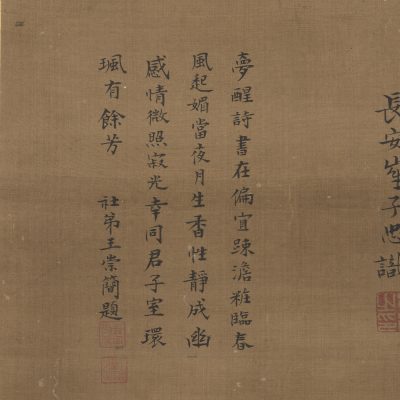 長安崔子忠識
夢醒詩書在偏宜踈澹粧臨春
風起媚當夜月生香性靜成幽
感情微照寂光幸同君子室環
珮有餘芳
社弟王崇簡題